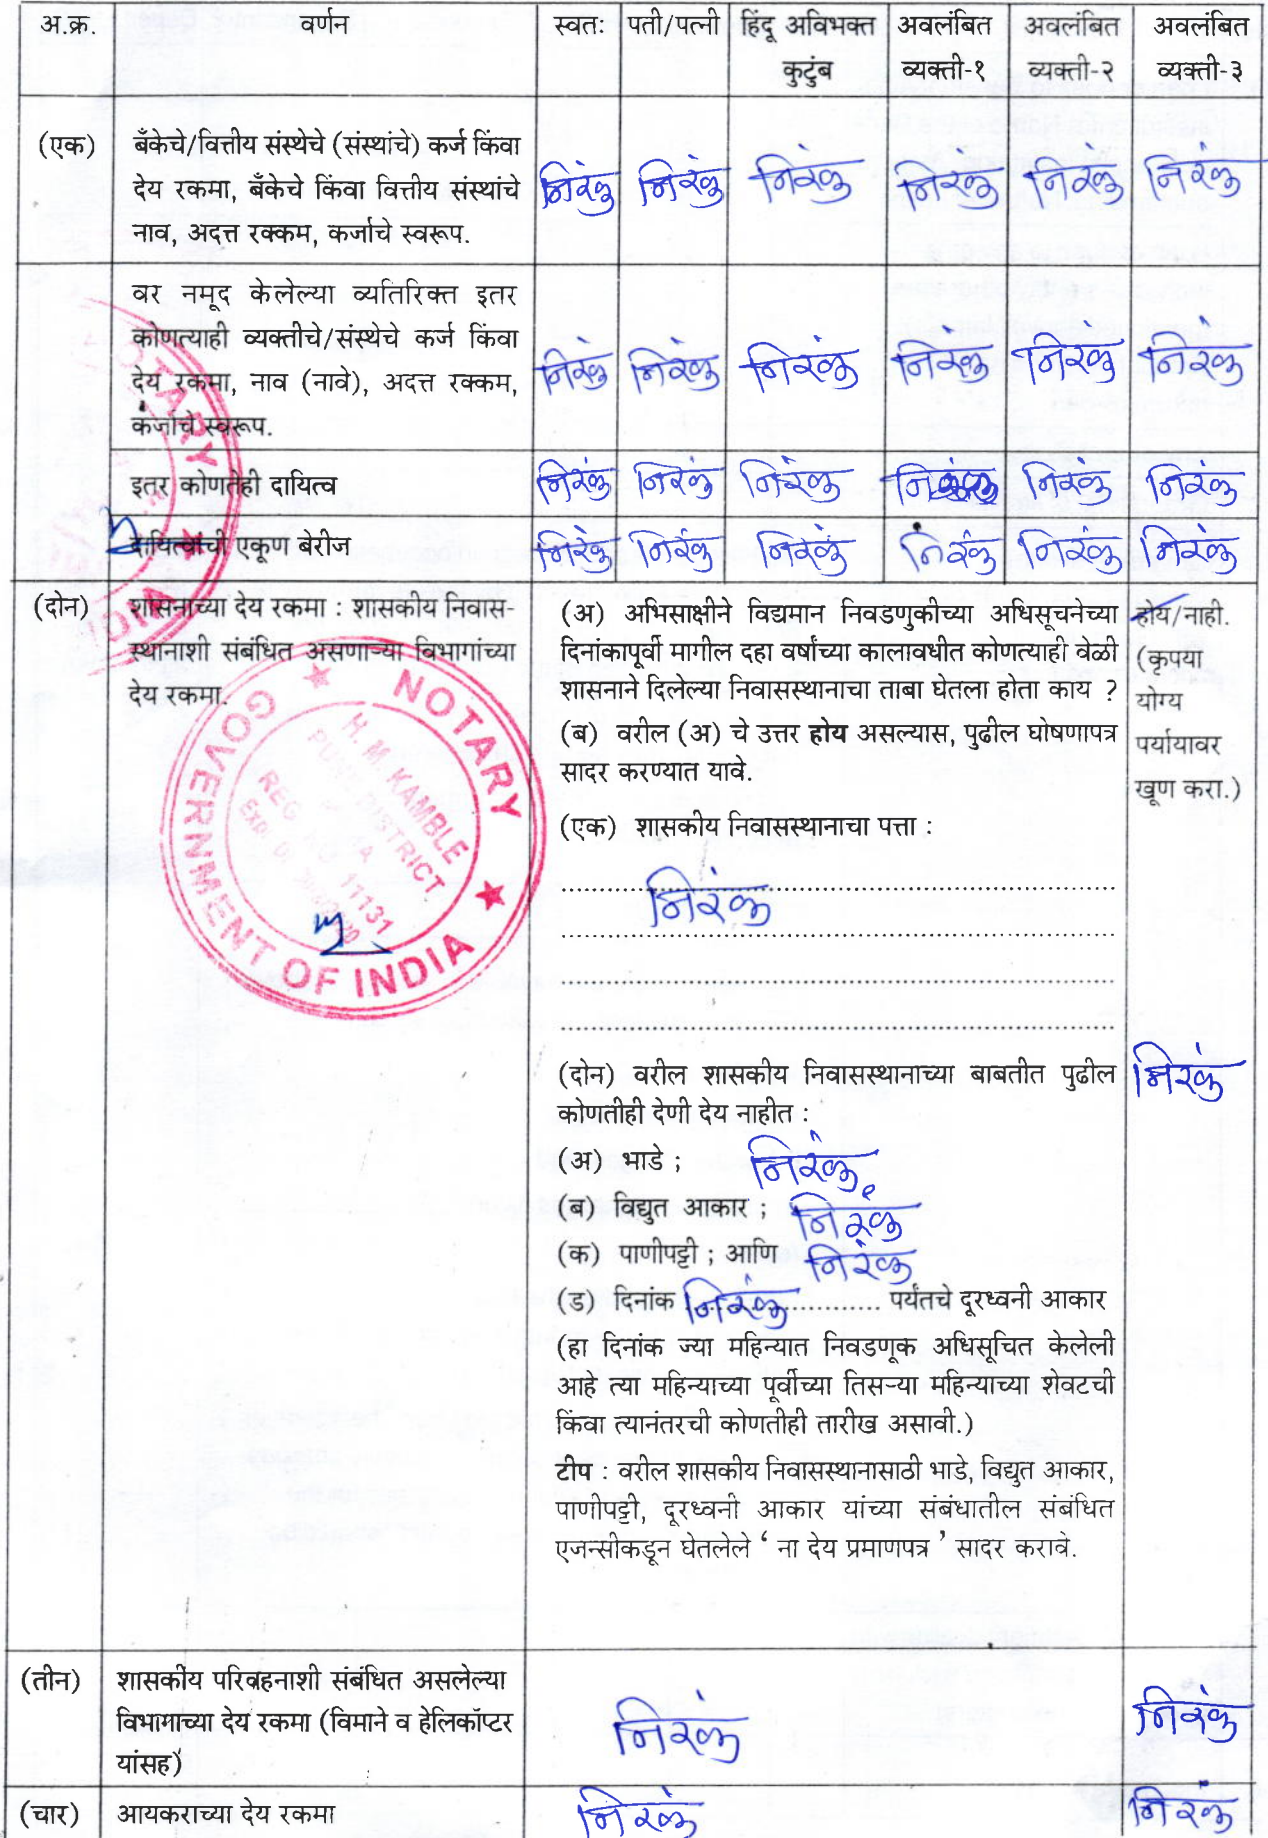 अ.क्र. वर्णन स्वतः पती/पत्नी हिंदू अविभक्त कुटुंब अवलंबित व्यक्ती-१ अवलंबित व्यक्ती-२ अवलंबित व्यक्ती-३
(एक) बँकेचे/वित्तीय संस्थेचे (संस्थांचे) कर्ज किंवा
देय रकमा, बँकेचे किंवा वित्तीय संस्थांचे
नाव, अदत्त रक्कम, कर्जाचे स्वरूप.
निरंक निरंक निरंक निरंक निरंक निरंक
वर नमूद केलेल्या व्यतिरिक्त इतर
कोणत्याही व्यक्तीचे/संस्थेचे कर्ज किंवा
देय रकमा, नाव (नावे), अदत्त रक्कम,
कर्जाचे स्वरूप.
निरंक निरंक निरंक निरंक निरंक निरंक
इतर कोणतेही दायित्व निरंक निरंक निरंक निरंक निरंक निरंक
दायित्वांची एकूण बेरीज निरंक निरंक निरंक निरंक निरंक निरंक
(दोन) शासनाच्या देय रकमा : शासकीय निवास-
स्थानाशी संबंधित असणाऱ्या विभागांच्या
देय रकमा.
(अ) अभिसाक्षीने विद्यमान निवडणुकीच्या अधिसूचनेच्या
दिनांकापूर्वी मागील दहा वर्षांच्या कालावधीत कोणत्याही वेळी
शासनाने दिलेल्या निवासस्थानाचा ताबा घेतला होता काय ?
(ब) वरील (अ) चे उत्तर होय असल्यास, पुढील घोषणापत्र
सादर करण्यात यावे.
होय/नाही.
(कृपया
योग्य
पर्यायावर
खूण करा.)
(एक) शासकीय निवासस्थानाचा पत्ता :
निरंक
(दोन) वरील शासकीय निवासस्थानाच्या बाबतीत पुढील
कोणतीही देणी देय नाहीत :
निरंक
(अ) भाडे ; निरंक
(ब) विद्युत आकार ; निरंक
(क) पाणीपट्टी ; आणि निरंक
(ड) दिनांक निरंक .................. पर्यंतचे दूरध्वनी आकार
(हा दिनांक ज्या महिन्यात निवडणूक अधिसूचित केलेली
आहे त्या महिन्याच्या पूर्वीच्या तिसऱ्या महिन्याच्या शेवटची
किंवा त्यानंतरची कोणतीही तारीख असावी.)
टीप : वरील शासकीय निवासस्थानासाठी भाडे, विद्युत आकार,
पाणीपट्टी, दूरध्वनी आकार यांच्या संबंधातील संबंधित
एजन्सीकडून घेतलेले ‘ ना देय प्रमाणपत्र ’ सादर करावे.
(तीन) शासकीय परिवहनाशी संबंधित असलेल्या
विभागाच्या देय रकमा (विमाने व हेलिकॉप्टर
यांसह)
निरंक निरंक
(चार) आयकराच्या देय रकमा निरंक निरंक
NOTARY
GOVERNMENT OF INDIA
H. M. KAMBLE
PUNE DISTRICT
11131
NOTARY